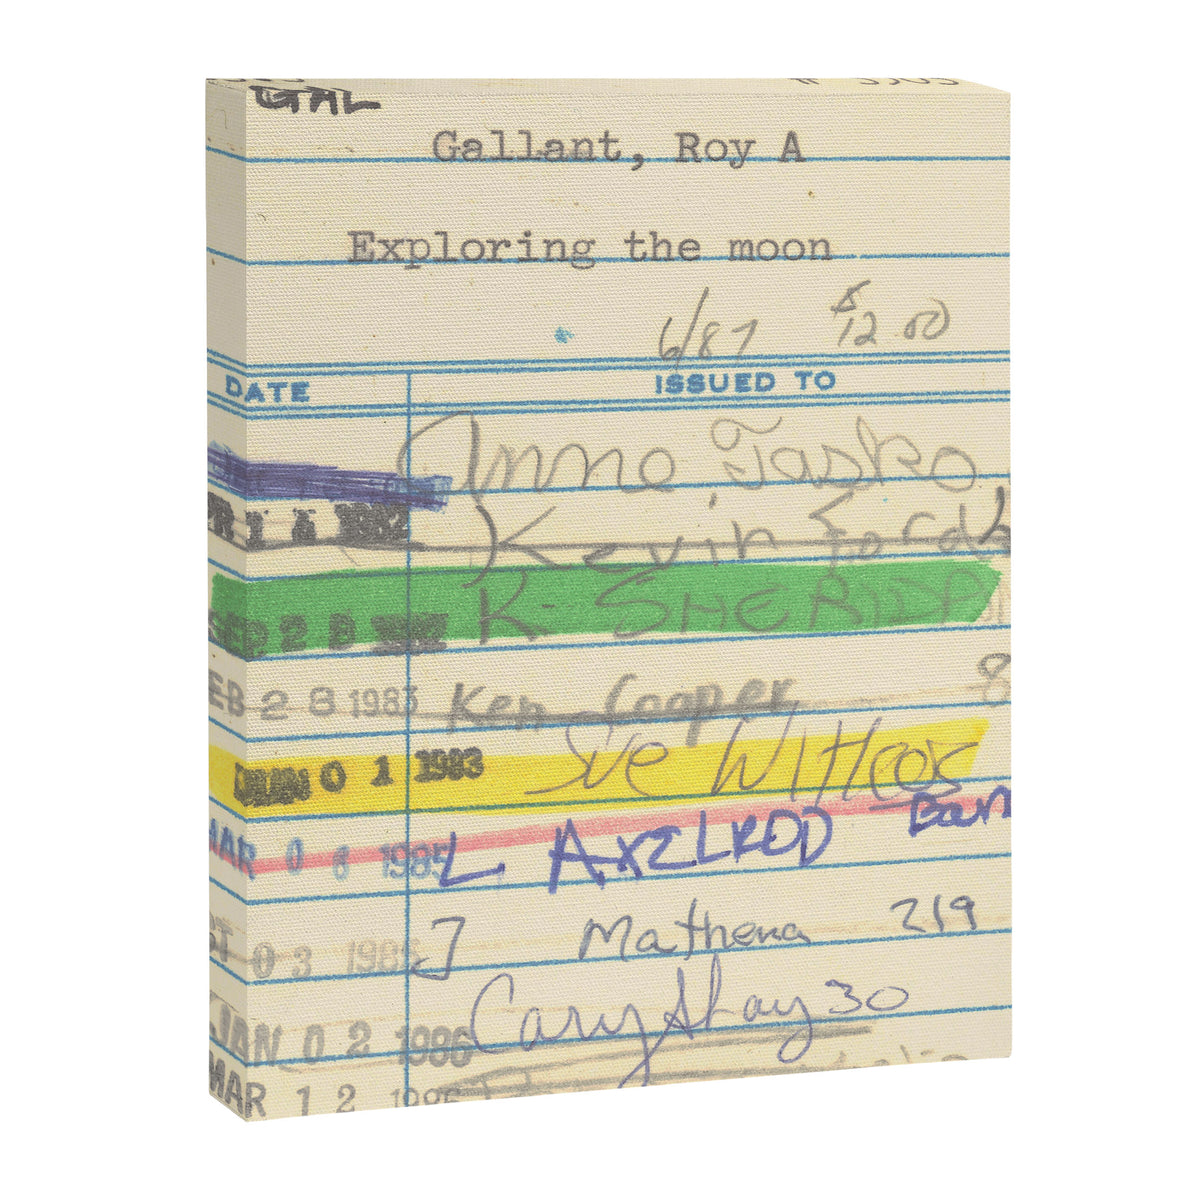 GAL
Gallant, Roy A
Exploring the moon
6/87 $12.00
DATE ISSUED TO
Anne Tasko
1982 Kevin Ford
SEP 28 K. SHERIDA
EB 28 1983 Ken Cooper 8
JUN 01 1983 Sue Witcox
MAR 06 1985 L AXELROD Barn
ST 03 1985 J Mathena 219
JAN 02 1986 Cary Shay 30
MAR 12 1986